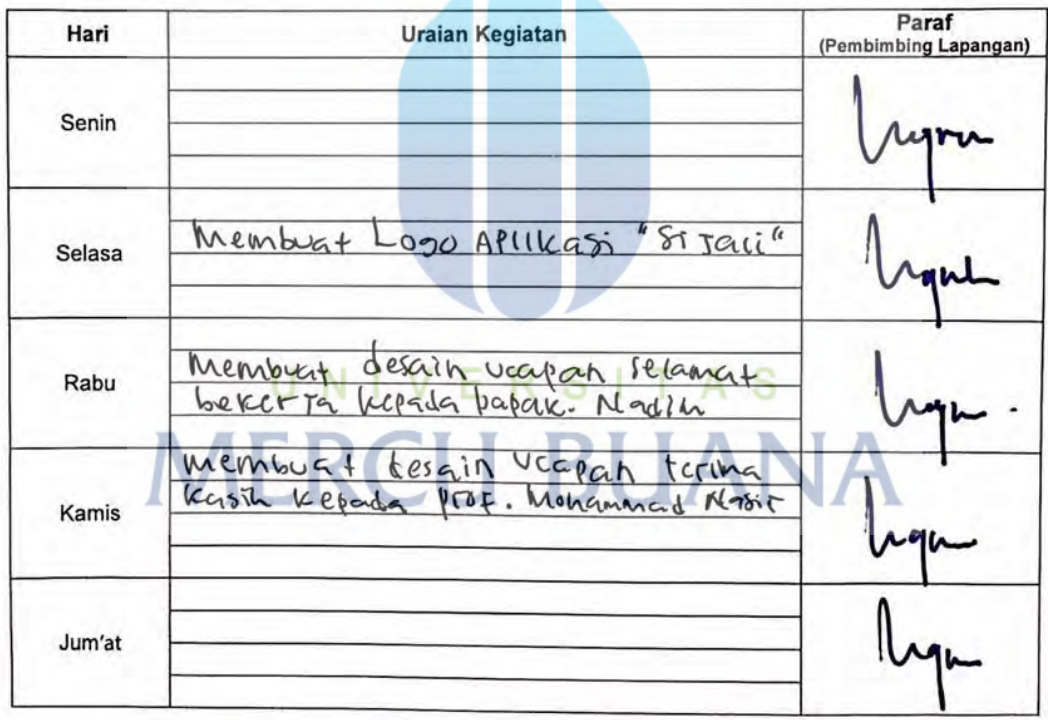 Hari Uraian Kegiatan Paraf
(Pembimbing Lapangan)
Senin
Selasa Membuat Logo Aplikasi "Si Jali"
Rabu Membuat desain ucapan selamat
bekerja kepada bapak. Nadim
Kamis Membuat desain ucapan terima
kasih kepada prof. Mohammad Nasir
Jum'at
UNIVERSITAS
MERCU BUANA